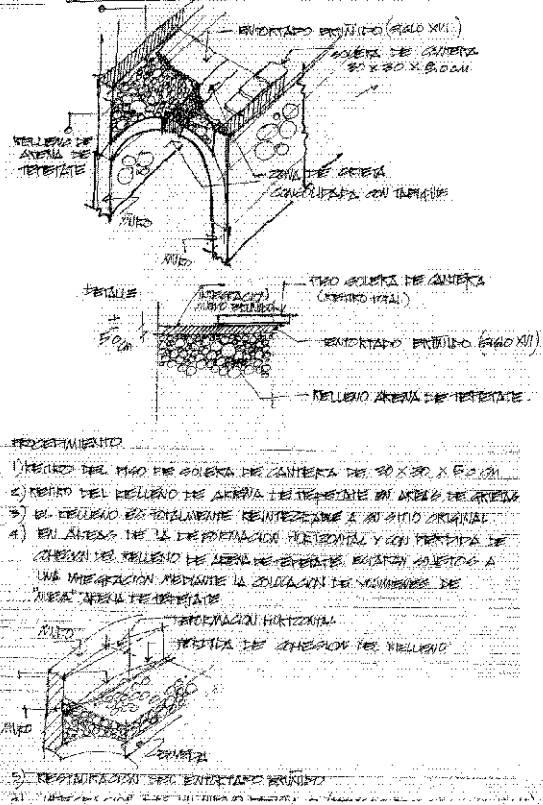 ENTORTADO BRUÑIDO (SIGLO XVI)
SOLERA DE CANTERA
30 X 30 X 5.0 CM
RELLENO DE
ARENA DE
TEPETATE
ZONA DE GRIETA
CONSOLIDADA CON TABIQUE
MURO
MURO
DETALLE
INTEGRACION
NUEVO BRUÑIDO
PISO SOLERA DE CANTERA
(RETIRO TOTAL)
±
50 cm
ENTORTADO BRUÑIDO (SIGLO XVI)
RELLENO ARENA DE TEPETATE
PROCEDIMIENTO
1) RETIRO DEL PISO DE SOLERA DE CANTERA DE 30 X 30 X 5.0 CM
2) RETIRO DEL RELLENO DE ARENA DE TEPETATE EN AREAS DE GRIETAS
3) EL RELLENO ES TOTALMENTE REINTEGRABLE A SU SITIO ORIGINAL
4) EN AREAS DE LA DEFORMACION HORIZONTAL Y CON PERDIDA DE
COHESION DEL RELLENO DE ARENA DE TEPETATE, ESTARAN SUJETOS A
UNA INTEGRACION MEDIANTE LA COLOCACION DE VOLUMENES DE
"NUEVA" ARENA DE TEPETATE
MURO
DEFORMACION HORIZONTAL
PERDIDA DE COHESION DEL RELLENO
MURO
BOVEDA
5) RESTAURACION DEL ENTORTADO BRUÑIDO
INTEGRACION DE UN NUEVO